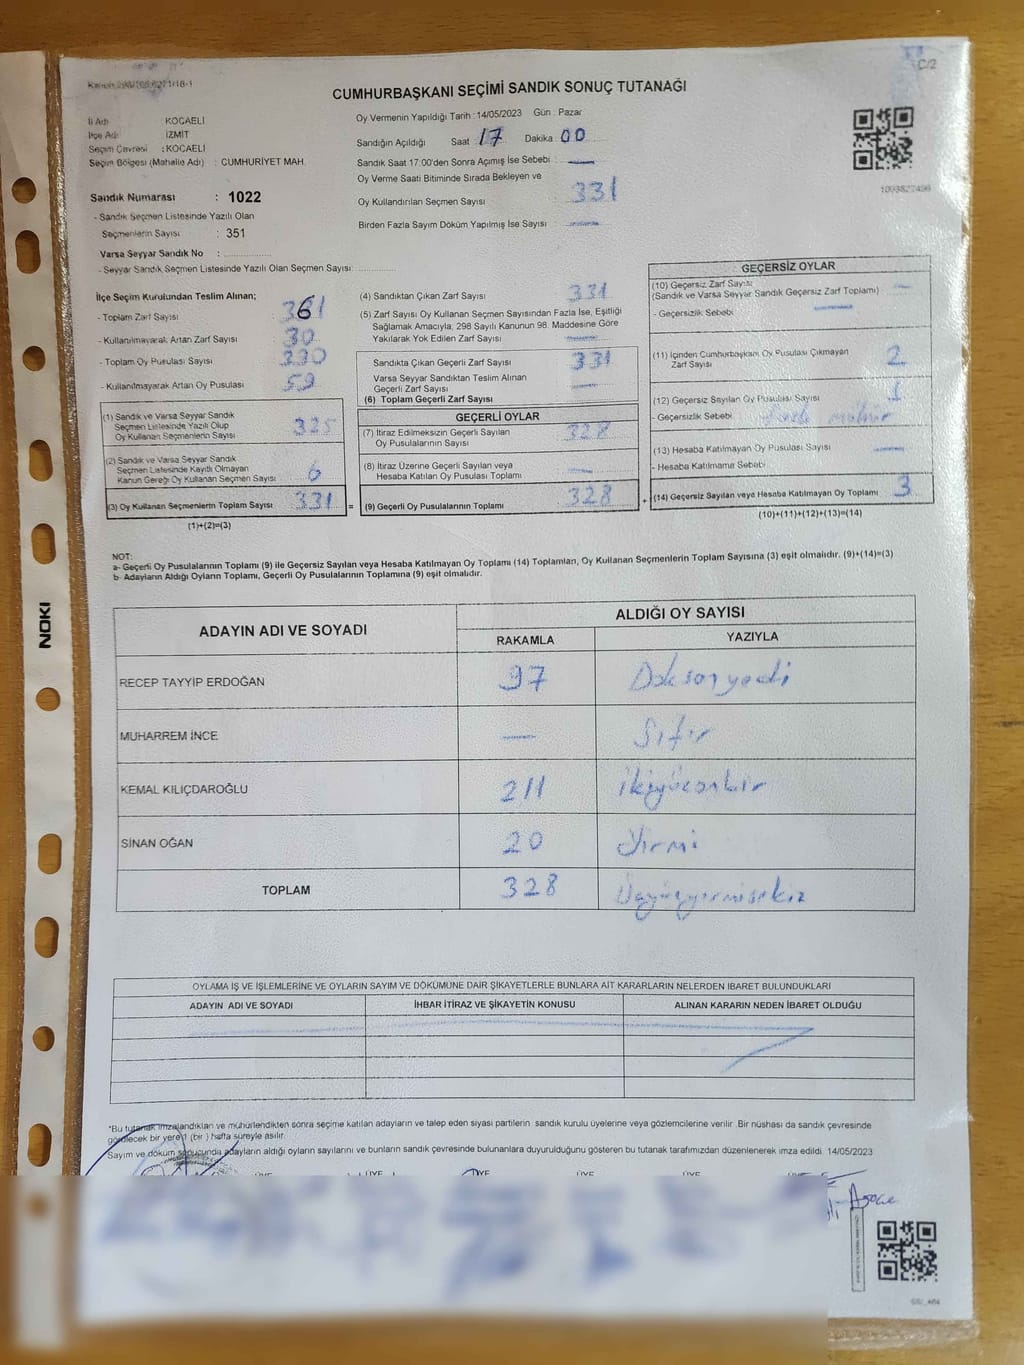 C/2
CUMHURBAŞKANI SEÇİMİ SANDIK SONUÇ TUTANAĞI
İl Adı : KOCAELİ
İlçe Adı : İZMİT
Seçim Çevresi : KOCAELİ
Seçim Bölgesi (Mahalle Adı) : CUMHURİYET MAH.
Sandık Numarası : 1022
- Sandık Seçmen Listesinde Yazılı Olan
Seçmenlerin Sayısı : 351
Varsa Seyyar Sandık No :
- Seyyar Sandık Seçmen Listesinde Yazılı Olan Seçmen Sayısı:
Oy Vermenin Yapıldığı Tarih : 14/05/2023 Gün : Pazar
Sandığın Açıldığı Saat 17 Dakika 00
Sandık Saat 17:00'den Sonra Açımış İse Sebebi : —
Oy Verme Saati Bitiminde Sırada Bekleyen ve
Oy Kullandırılan Seçmen Sayısı : 331
Birden Fazla Sayım Döküm Yapılmış İse Sayısı : —
İlçe Seçim Kurulundan Teslim Alınan;
- Toplam Zarf Sayısı : 361
- Kullanılmayarak Artan Zarf Sayısı : 30
- Toplam Oy Pusulası Sayısı :
- Kullanılmayarak Artan Oy Pusulası : 59
(1) Sandık ve Varsa Seyyar Sandık
Seçmen Listesinde Yazılı Olup
Oy Kullanan Seçmenlerin Sayısı : 325
(2) Sandık ve Varsa Seyyar Sandık
Seçmen Listesinde Kayıtlı Olmayan
Kanun Gereği Oy Kullanan Seçmen Sayısı : 6
(3) Oy Kullanan Seçmenlerin Toplam Sayısı : 331
(1)+(2)=(3)
=
(4) Sandıktan Çıkan Zarf Sayısı : 331
(5) Zarf Sayısı Oy Kullanan Seçmen Sayısından Fazla İse, Eşitliği
Sağlamak Amacıyla, 298 Sayılı Kanunun 98. Maddesine Göre
Yakılarak Yok Edilen Zarf Sayısı : —
Sandıkta Çıkan Geçerli Zarf Sayısı : 331
Varsa Seyyar Sandıktan Teslim Alınan
Geçerli Zarf Sayısı : —
(6) Toplam Geçerli Zarf Sayısı :
GEÇERLİ OYLAR
(7) İtiraz Edilmeksizin Geçerli Sayılan
Oy Pusulalarının Sayısı : 328
(8) İtiraz Üzerine Geçerli Sayılan veya
Hesaba Katılan Oy Pusulası Toplamı : —
(9) Geçerli Oy Pusulalarının Toplamı : 328
+
GEÇERSİZ OYLAR
(10) Geçersiz Zarf Sayısı
(Sandık ve Varsa Seyyar Sandık Geçersiz Zarf Toplamı) : —
- Geçersizlik Sebebi : —
(11) İçinden Cumhurbaşkanı Oy Pusulası Çıkmayan
Zarf Sayısı : 2
(12) Geçersiz Sayılan Oy Pusulası Sayısı : 1
- Geçersizlik Sebebi : mühür
(13) Hesaba Katılmayan Oy Pusulası Sayısı : —
- Hesaba Katılmama Sebebi :
(14) Geçersiz Sayılan veya Hesaba Katılmayan Oy Toplamı : 3
(10)+(11)+(12)+(13)=(14)
NOT:
a- Geçerli Oy Pusulalarının Toplamı (9) ile Geçersiz Sayılan veya Hesaba Katılmayan Oy Toplamı (14) Toplamları, Oy Kullanan Seçmenlerin Toplam Sayısına (3) eşit olmalıdır. (9)+(14)=(3)
b- Adayların Aldığı Oyların Toplamı, Geçerli Oy Pusulalarının Toplamına (9) eşit olmalıdır.
ADAYIN ADI VE SOYADI
ALDIĞI OY SAYISI
RAKAMLA YAZIYLA
RECEP TAYYİP ERDOĞAN 97 Doksanyedi
MUHARREM İNCE — Sıfır
KEMAL KILIÇDAROĞLU 211 İkiyüzonbir
SİNAN OĞAN 20 Yirmi
TOPLAM 328 Üçyüzyirmisekiz
OYLAMA İŞ VE İŞLEMLERİNE VE OYLARIN SAYIM VE DÖKÜMÜNE DAİR ŞİKAYETLERLE BUNLARA AİT KARARLARIN NELERDEN İBARET BULUNDUKLARI
ADAYIN ADI VE SOYADI İHBAR İTİRAZ VE ŞİKAYETİN KONUSU ALINAN KARARIN NEDEN İBARET OLDUĞU
*Bu tutanak imzalandıktan ve mühürlendikten sonra seçime katılan adayların ve talep eden siyasi partilerin sandık kurulu üyelerine veya gözlemcilerine verilir. Bir nüshası da sandık çevresinde
görülecek bir yere 1 (bir ) hafta süreyle asılır.
Sayım ve döküm sonucunda adayların aldığı oyların sayılarını ve bunların sandık çevresinde bulunanlara duyurulduğunu gösteren bu tutanak tarafımızdan düzenlenerek imza edildi. 14/05/2023
ÜYE ÜYE ÜYE ÜYE
NOKI